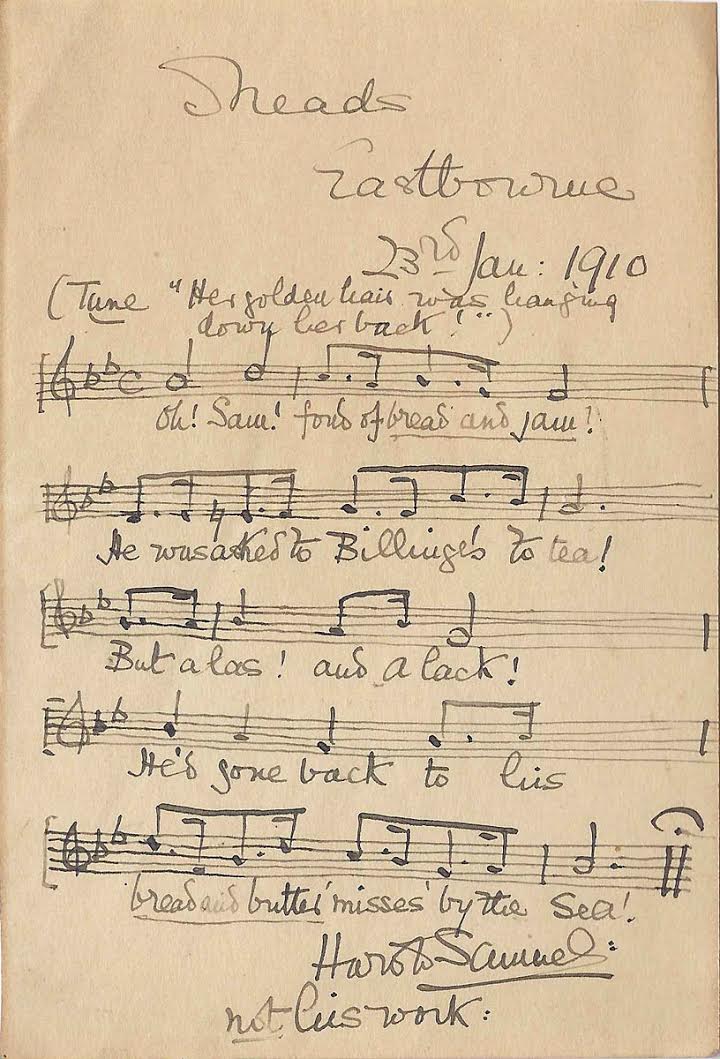 Meads
Eastbourne
23rd Jan: 1910
(Tune "Her golden hair was hanging
down her back!")
Oh! Sam! fond of bread and jam!
He was asked to Billinge's to tea!
But alas! and alack!
He's gone back to his
bread and butter 'misses' by the Sea!
Harold Samuel:
not his work: